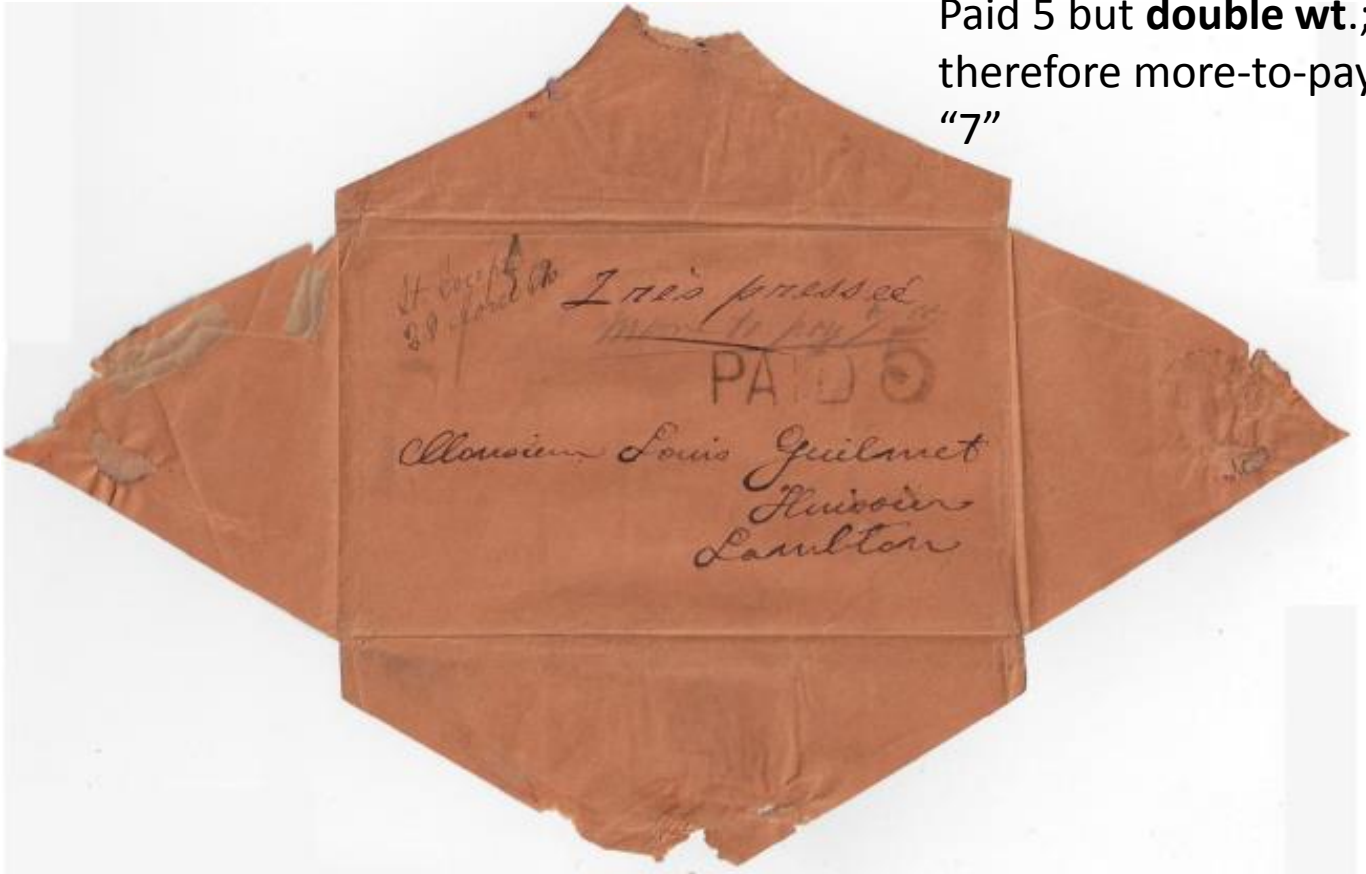 Paid 5 but double wt.;
therefore more-to-pay
“7”
St
Très pressée
more to pay
PAID 5
Monsieur Louis Guilmet
Huissier
Lambton